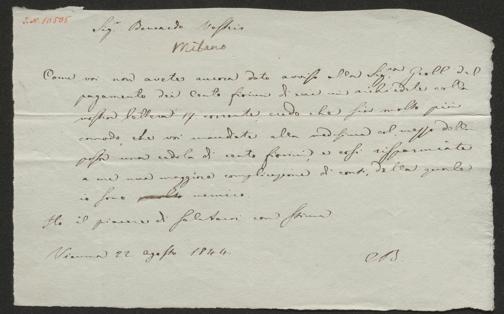 I.N. 10505
Sigr Bernardo
Milano
Come voi non avete ancora dato avviso alla Sigra Gioll del
pagamento dei Cento fiorini di cui mi richiedete colla
vostra lettera 17 corrente, credo che sia molto più
comodo, che voi mandate alla medesima col mezzo della
posta una cedola di cento fiorini, e così risparmiate
a me una maggiore complicazione di conti, della quale
io sono nemico
Ho il piacere di salutarvi con stima
Vienna 22 agosto 1844.
CB